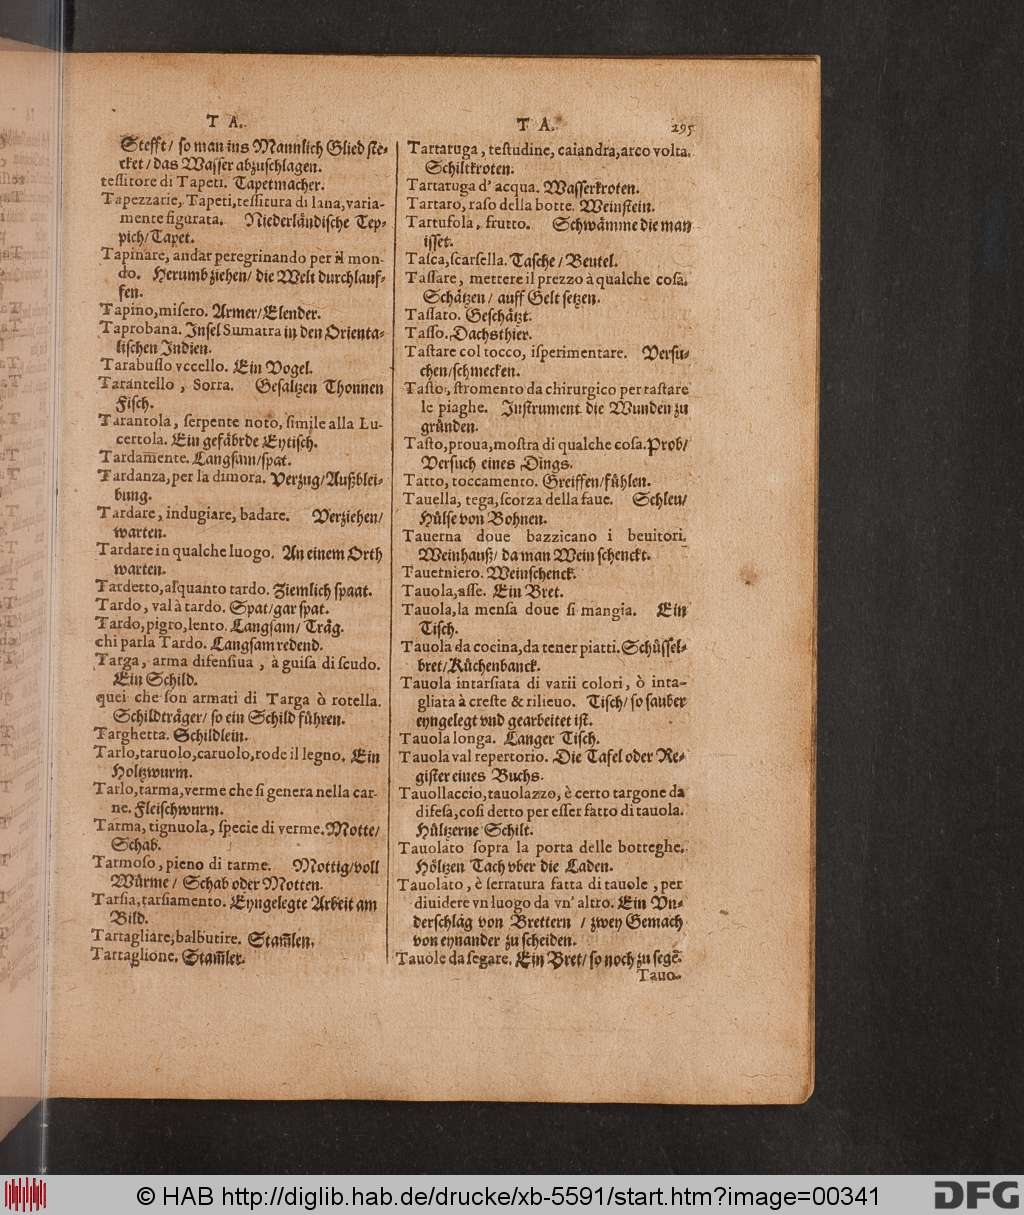 T A.
Stefft/ so man ins Mannlich Glied ste-
cket/ das Wasser abzuschlagen.
tessitore di Tapeti. Tapetmacher.
Tapezzarie, Tapeti, tessitura di lana, varia-
mente figurata. Niederländische Tep-
pich/Tapet.
Tapinare, andar peregrinando per il mon-
do. Herumb ziehen/ die Welt durchlauf-
fen.
Tapino, misero. Armer/Elender.
Taprobana. Insel Sumatra in den Orienta-
lischen Indien.
Tarabusso vccello. Ein Vogel.
Tarantello, Sorra. Gesaltzen Thonnen
Fisch.
Tarantola, serpente noto, simile alla Lu-
certola. Ein gefährde Eytisch.
Tardam̃ente. Langsam/spat.
Tardanza, per la dimora. Verzug/Außblei-
bung.
Tardare, indugiare, badare. Verziehen/
warten.
Tardare in qualche luogo. An einem Orth
warten.
Tardetto, alquanto tardo. Ziemlich spaat.
Tardo, val à tardo. Spat/gar spat.
Tardo, pigro, lento. Langsam/ Träg.
chi parla Tardo. Langsam redend.
Targa, arma difensiua, à guisa di scudo.
Ein Schild.
quei che son armati di Targa ò rotella.
Schildträger/ so ein Schild führen.
Targhetta. Schildlein.
Tarlo, taruolo, caruolo, rode il legno. Ein
Holtzwurm.
Tarlo, tarma, verme che si genera nella car-
ne. Fleischwurm.
Tarma, tignuola, specie di verme. Motte/
Schab.
Tarmoso, pieno di tarme. Mottig/voll
Würme/ Schab oder Motten.
Tarsia, tarsiamento. Eyngelegte Arbeit am
Bild.
Tartagliare, balbutire. Stam̃len.
Tartaglione. Stam̃ler.
T A. 295
Tartaruga, testudine, caiandra, arco volta.
Schiltkroten.
Tartaruga d' acqua. Wasserkroten.
Tartaro, raso della botte. Weinstein.
Tartufola, frutto. Schwämme die man
isset.
Tasca, scarsella. Tasche/ Beutel.
Tassare, mettere il prezzo à qualche cosa.
Schätzen/ auff Gelt setzen.
Tassato. Geschätzt.
Tasso. Dachsthier.
Tastare col tocco, isperimentare. Versu-
chen/schmecken.
Tasto, stromento da chirurgico per tastare
le piaghe. Instrument die Wunden zu
gründen.
Tasto, proua, mostra di qualche cosa. Prob/
Versuch eines Dings.
Tatto, toccamento. Greiffen/fühlen.
Tauella, tega, scorza della faue. Schlen/
Hülse von Bohnen.
Tauerna doue bazzicano i beuitori.
Weinhauß/ da man Wein schenckt.
Tauerniero. Weinschenck.
Tauola, asse. Ein Bret.
Tauola, la mensa doue si mangia. Ein
Tisch.
Tauola da cocina, da tener piatti. Schüssel-
bret/Küchenbanck.
Tauola intarsiata di varii colori, ò inta-
gliata à creste & rilieuo. Tisch/ so sauber
eyngelegt vnd gearbeitet ist.
Tauola longa. Langer Tisch.
Tauola val repertorio. Die Tafel oder Re-
gister eines Buchs.
Tauollaccio, tauolazzo, è certo targone da
difesa, così detto per esser fatto di tauola.
Hültzerne Schilt.
Tauolato sopra la porta delle botteghe.
Höltzen Tach vber die Laden.
Tauolato, è serratura fatta di tauole, per
diuidere vn luogo da vn' altro. Ein Vn-
derschlag von Brettern / zwey Gemach
von eynander zu scheiden.
Tauole da segare. Ein Bret/ so noch zu segẽ.
Tauo-
© HAB http://diglib.hab.de/drucke/xb-5591/start.htm?image=00341
DFG